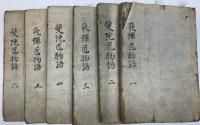 飛彈匠物語 一
斐陀匠物語 二
飛彈匠物語 三
斐陀匠物語 四
飛彈匠物語 五
斐陀匠物語 六